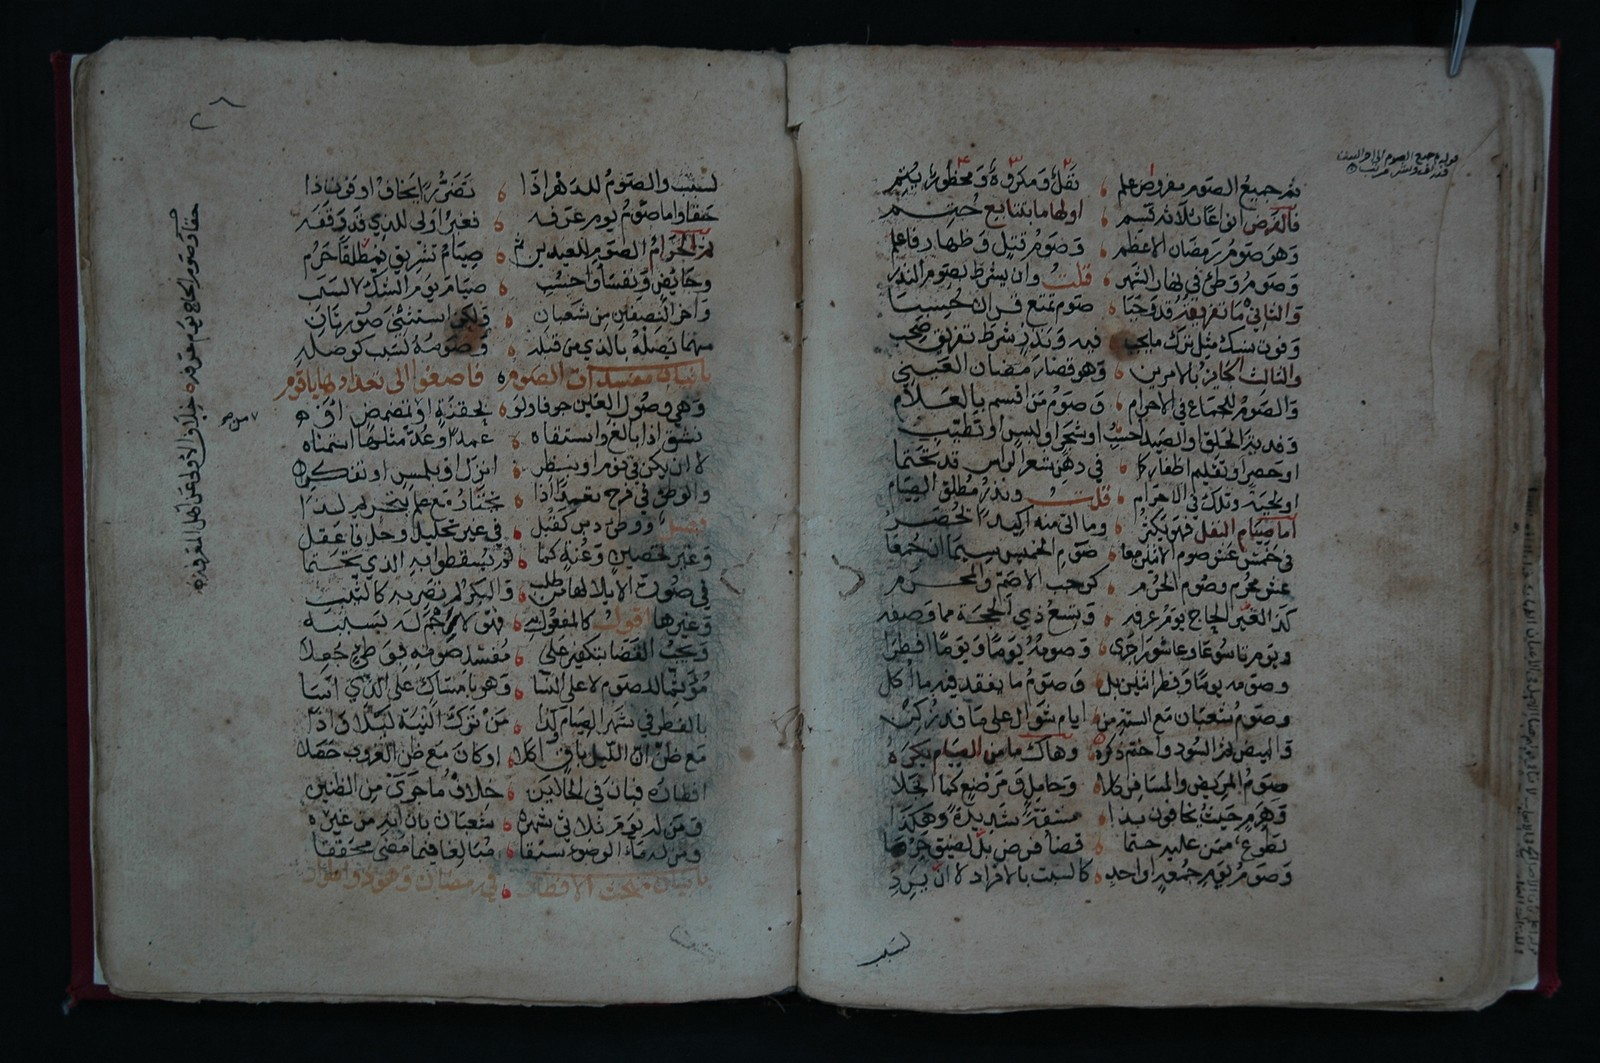 ثم جميع الصوم مفروض علم نفل ومكروه ومحظور يتم
فالفرض انواعا ثلاثة قسم اولها ما بتتابع حتم
وهو صوم رمضان الاعظم وصوم قتل وظهار فاعلم
وصوم وطئ في نهار الشهر قلت وان يشرط بصوم النذر
والثاني ما تفريقه قد وجبا صوم تمتع قران حسبا
وفوت نسك مثل ترك مايجب فيه ونذر شرط تفريق صحب
والثالث الجائز بالامرين وهو قضا رمضان العيني
والصوم للجماع في الاحرام وصوم من اقسم بالعلام
وفدية الحلق والصيد احسب او شجر اولبس او تطيب
او حصر او تقليم اظفار كما في دهن شعر الراس قد تحتما
او لحية وتلك في الاحرام قلت ونذر مطلق الصيام
اما صيام النفل فهو يكثر وما اتى منه اكيدا انحصر
في خمس عشر صوم الاثنين معا صوم الخميس سيما ان جمعا
عشر محرم وصوم الحرم كرجب الاصم والمحرم
كذا لغير الحاج يوم عرفه وتسع ذي الحجة مما وصفه
ويوم تاسوعا وعاشورا جرى وصومه يوما ويوما افطرا
وصومه يوما وفطر اثنين بل وصوم ما يفقد فيه ما اكل
وصوم شعبان مع الستة من ايام شوال على ما قد زكن
والبيض ثم السود واختم ذكره وهاك ما من الصيام يكره
صوم المريض والمسافر كلا وحامل ومرضع كما انجلا
وهرم حيث يخافون بدا مشقة شديدة وهكذا
تطوع ممن عليه حتما قضا فرض بل لضيق
وصوم يوم جمعة او احد كالسبت بالافراد لا ان يرد
لسبب
قوله ثم جميع الصوم الى اخر البيت
لسبب والصوم للدهر اذا تضررا يخاف او فوت اذا
حقا واما صوم يوم عرفه فغير اولى للذي قد وقفه
ثم الحرام الصوم للعيدين صيام تشريق نعم مطلقا حرم
وحائض ونفساء احسب صيام يوم الشك لا لسبب
واخر النصفين من شعبان ولكن استثنى صورتان
مهما يصله بالذي من قبله وصومه لسبب كوصله
باب بيان مفسدات الصوم فاصغوا الى تعدادها ياقوم
وهي وصول العين جوفا ولو بحقنة او تمضمض او
نشق اذا بالغ واستقاه عمدا وعد مثلها استمناه
لا ان يكن في نوم او بنظر انزل او بلمس او تفكر
والوطئ في فرج تعمدا اذا يختار مع علم بتحريم لذا
فصل ووطئ دبر كقبل في غير تحليل وحل فاعقل
وغير تحصين وعنة كما لم يسقطوا به الذي تحتما
في صورة الايلا لها من طلب والبكر لم نضر به كالثيب
وغيرها اقول كالمفعول به فهو لا رجم له بسببه
ويجب القضا بتكفير على مفسد صومه بوطئ جعلا
مؤثما لصوم لا على النسا وهو بامساك على الذي اسا
بالفطر في شهر الصيام كذا من ترك النية ليلا واذا
مع ظن ان الليل باق اكلا او كان مع ظن الغروب حصلا
افطاره فبان في الحالين خلاف ما جرى من الظنين
ومن له يوم ثلاثي شهره شعبان بان انه من غيره
ومن له ماء الوضوء سبقا مبالغا فيما مضى محققا
باب بيان بحث الافطار في رمضان وهو ذو اطوار
٢٨
حقا وصوم الحاج يوم عرفه خلاف الاولى عن اهل المعرفه